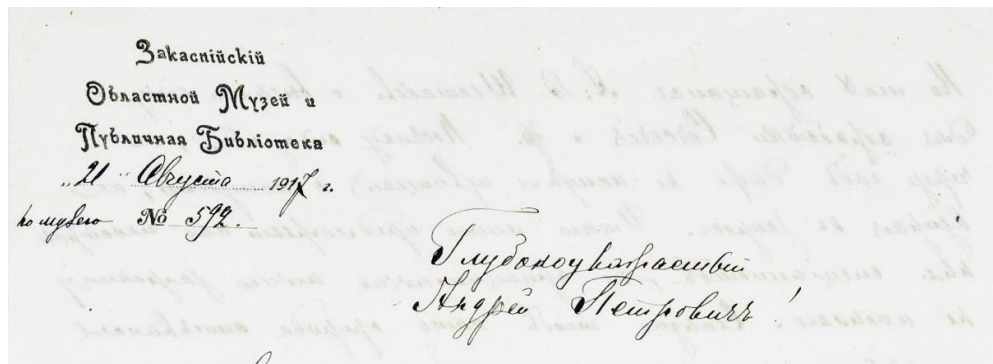 Закаспійскій
Областной Музей и
Публичная Библіотека
„21" Августа 1917 г.
по музею № 592.
Глубокоуважаемый
Андрей Петровичъ!